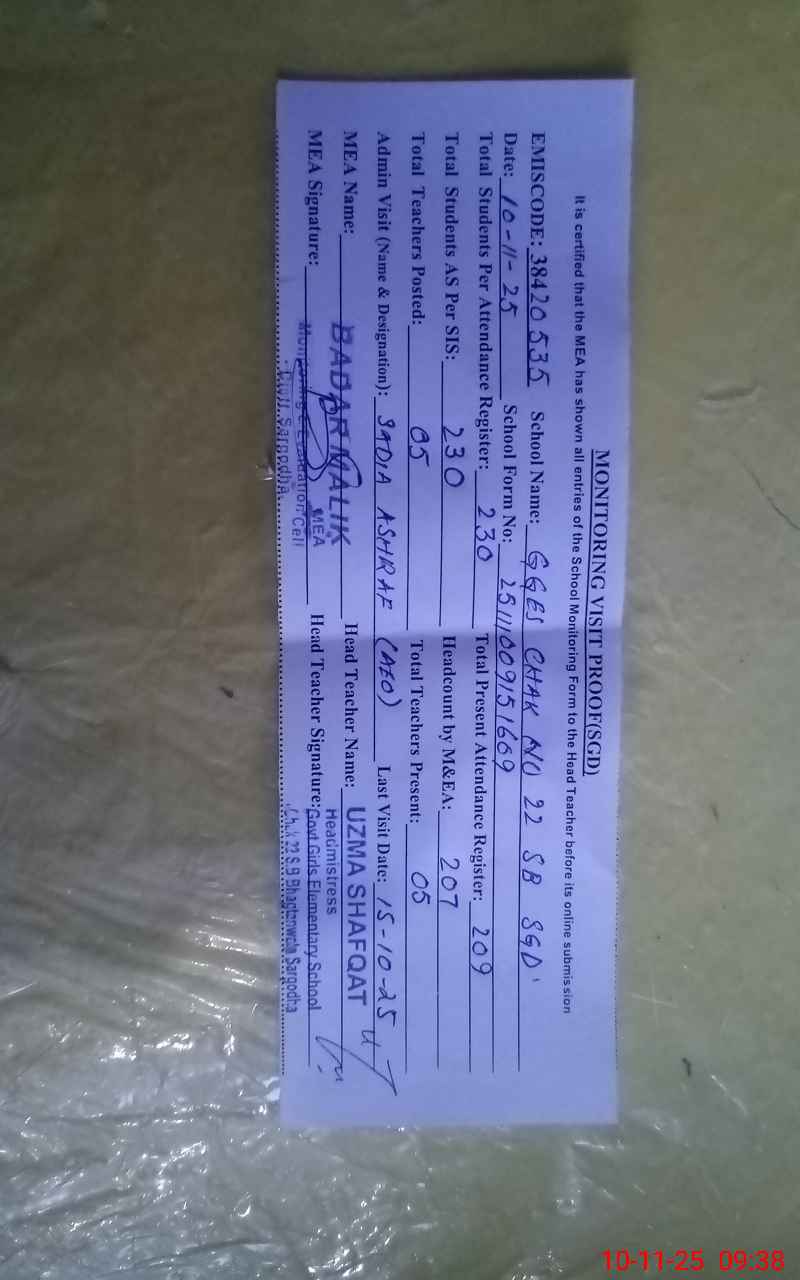 MONITORING VISIT PROOF(SGD)
It is certified that the MEA has shown all entries of the School Monitoring Form to the Head Teacher before its online submission
EMISCODE: 38420535 School Name: GGES CHAK NO 22 SB SGD
Date: 10-11-25 School Form No: 25111009151669
Total Students Per Attendance Register: 230 Total Present Attendance Register: 209
Total Students AS Per SIS: 230 Headcount by M&EA: 207
Total Teachers Posted: 05 Total Teachers Present: 05
Admin Visit (Name & Designation): SADIA ASHRAF (AEO) Last Visit Date: 15-10-25
MEA Name: BADAR MALIK Head Teacher Name: UZMA SHAFQAT
MEA Signature: MEA Head Teacher Signature: Headmistress
Monitoring & Evaluation Cell Govt Girls Elementary School
Sargodha Chak 22 S.B Bhagtanwala Sargodha
10-11-25 09:38